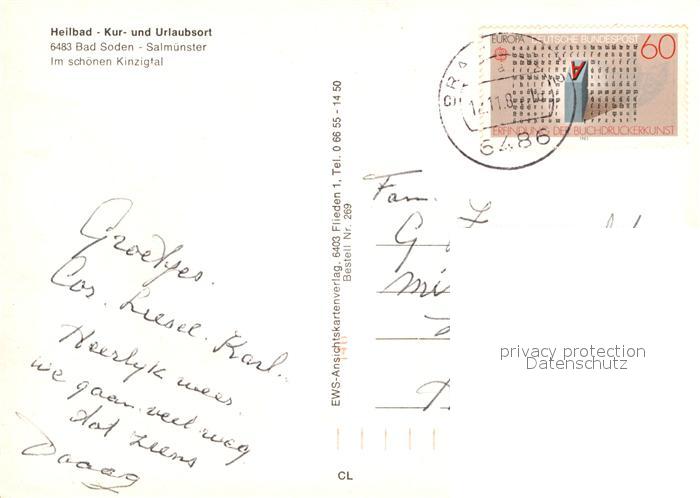 Heilbad - Kur- und Urlaubsort
6483 Bad Soden - Salmünster
Im schönen Kinzigtal
EUROPA DEUTSCHE BUNDESPOST
60
ERFINDUNG DER BUCHDRUCKERKUNST
6486
EWS-Ansichtskartenverlag, 6403 Flieden 1, Tel. 0 66 55 - 14 50
Bestell Nr. 269
Fam.
Groetjes.
Cos. Liesel. Karl.
Heerlyk weer
we gaan veel weg
tot ziens
Daaag
privacy protection
Datenschutz
CL